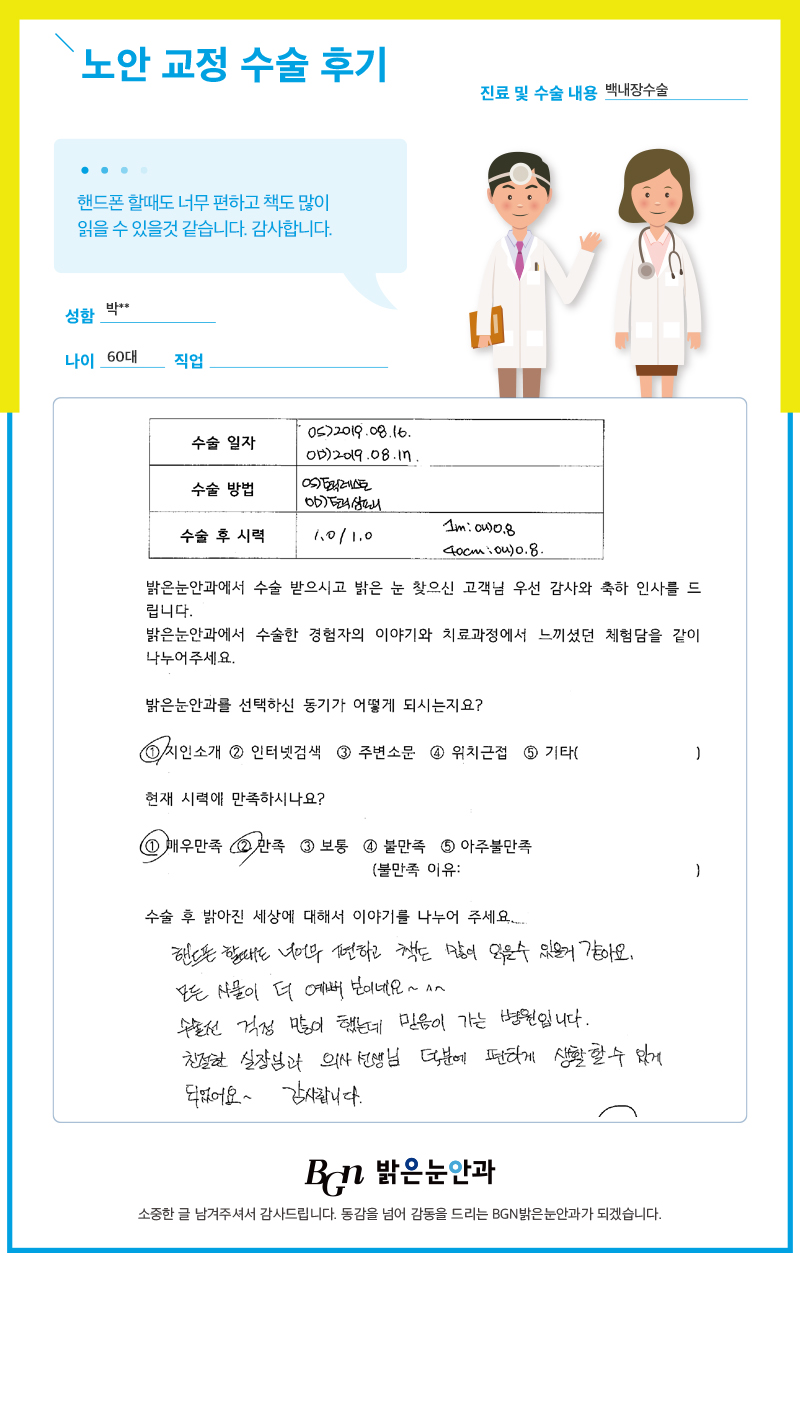 노안 교정 수술 후기
진료 및 수술 내용 백내장수술
핸드폰 할때도 너무 편하고 책도 많이
읽을 수 있을것 같습니다. 감사합니다.
성함 박**
나이 60대 직업
수술 일자 OS)2019.08.16.
OD)2019.08.17.
수술 방법 OS)
OD)
수술 후 시력 1.0 / 1.0 1m: OU)0.8
40cm: OU)0.8.
밝은눈안과에서 수술 받으시고 밝은 눈 찾으신 고객님 우선 감사와 축하 인사를 드
립니다.
밝은눈안과에서 수술한 경험자의 이야기와 치료과정에서 느끼셨던 체험담을 같이
나누어주세요.
밝은눈안과를 선택하신 동기가 어떻게 되시는지요?
① 지인소개 ② 인터넷검색 ③ 주변소문 ④ 위치근접 ⑤ 기타( )
현재 시력에 만족하시나요?
① 매우만족 ② 만족 ③ 보통 ④ 불만족 ⑤ 아주불만족
(불만족 이유: )
수술 후 밝아진 세상에 대해서 이야기를 나누어 주세요.
핸드폰 할때도 너어무 편하고 책도 많이 읽을수 있을거 같아요.
모든 사물이 더 예뻐 보이네요~ ^^
수술전 걱정 많이 했는데 믿음이 가는 병원입니다.
친절한 실장님과 의사선생님 덕분에 편하게 생활할수 있게
되었어요~ 감사합니다.
BGn 밝은눈안과
소중한 글 남겨주셔서 감사드립니다. 동감을 넘어 감동을 드리는 BGN밝은눈안과가 되겠습니다.